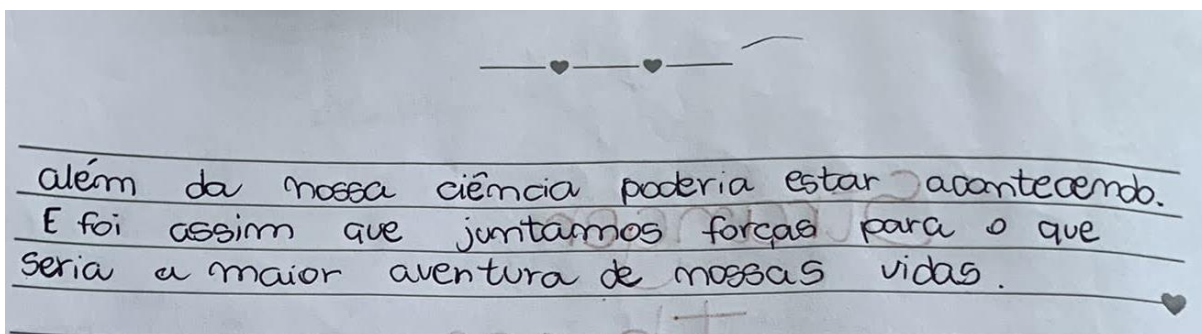 além da nossa ciência poderia estar acontecendo.
E foi assim que juntamos forças para o que
seria a maior aventura de nossas vidas.